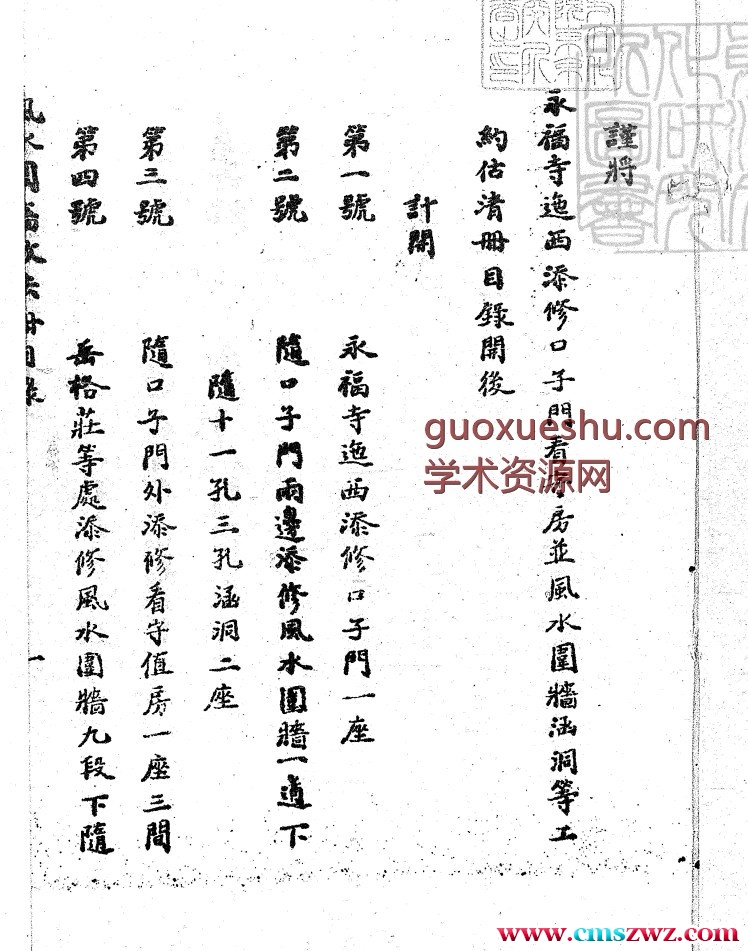 謹將
永福寺迤西添修口子門看守房並風水圍牆涵洞等工
約估清冊目錄開後
計開
第一號 永福寺迤西添修口子門一座
第二號 隨口子門兩邊添修風水圍牆一道下
隨十一孔三孔涵洞二座
第三號 隨口子門外添修看守值房一座三間
第四號 岳格莊等處添修風水圍牆九段下隨
風水圍牆 目錄
一
guoxueshu.com
学术资源网
www.cmszwz.com